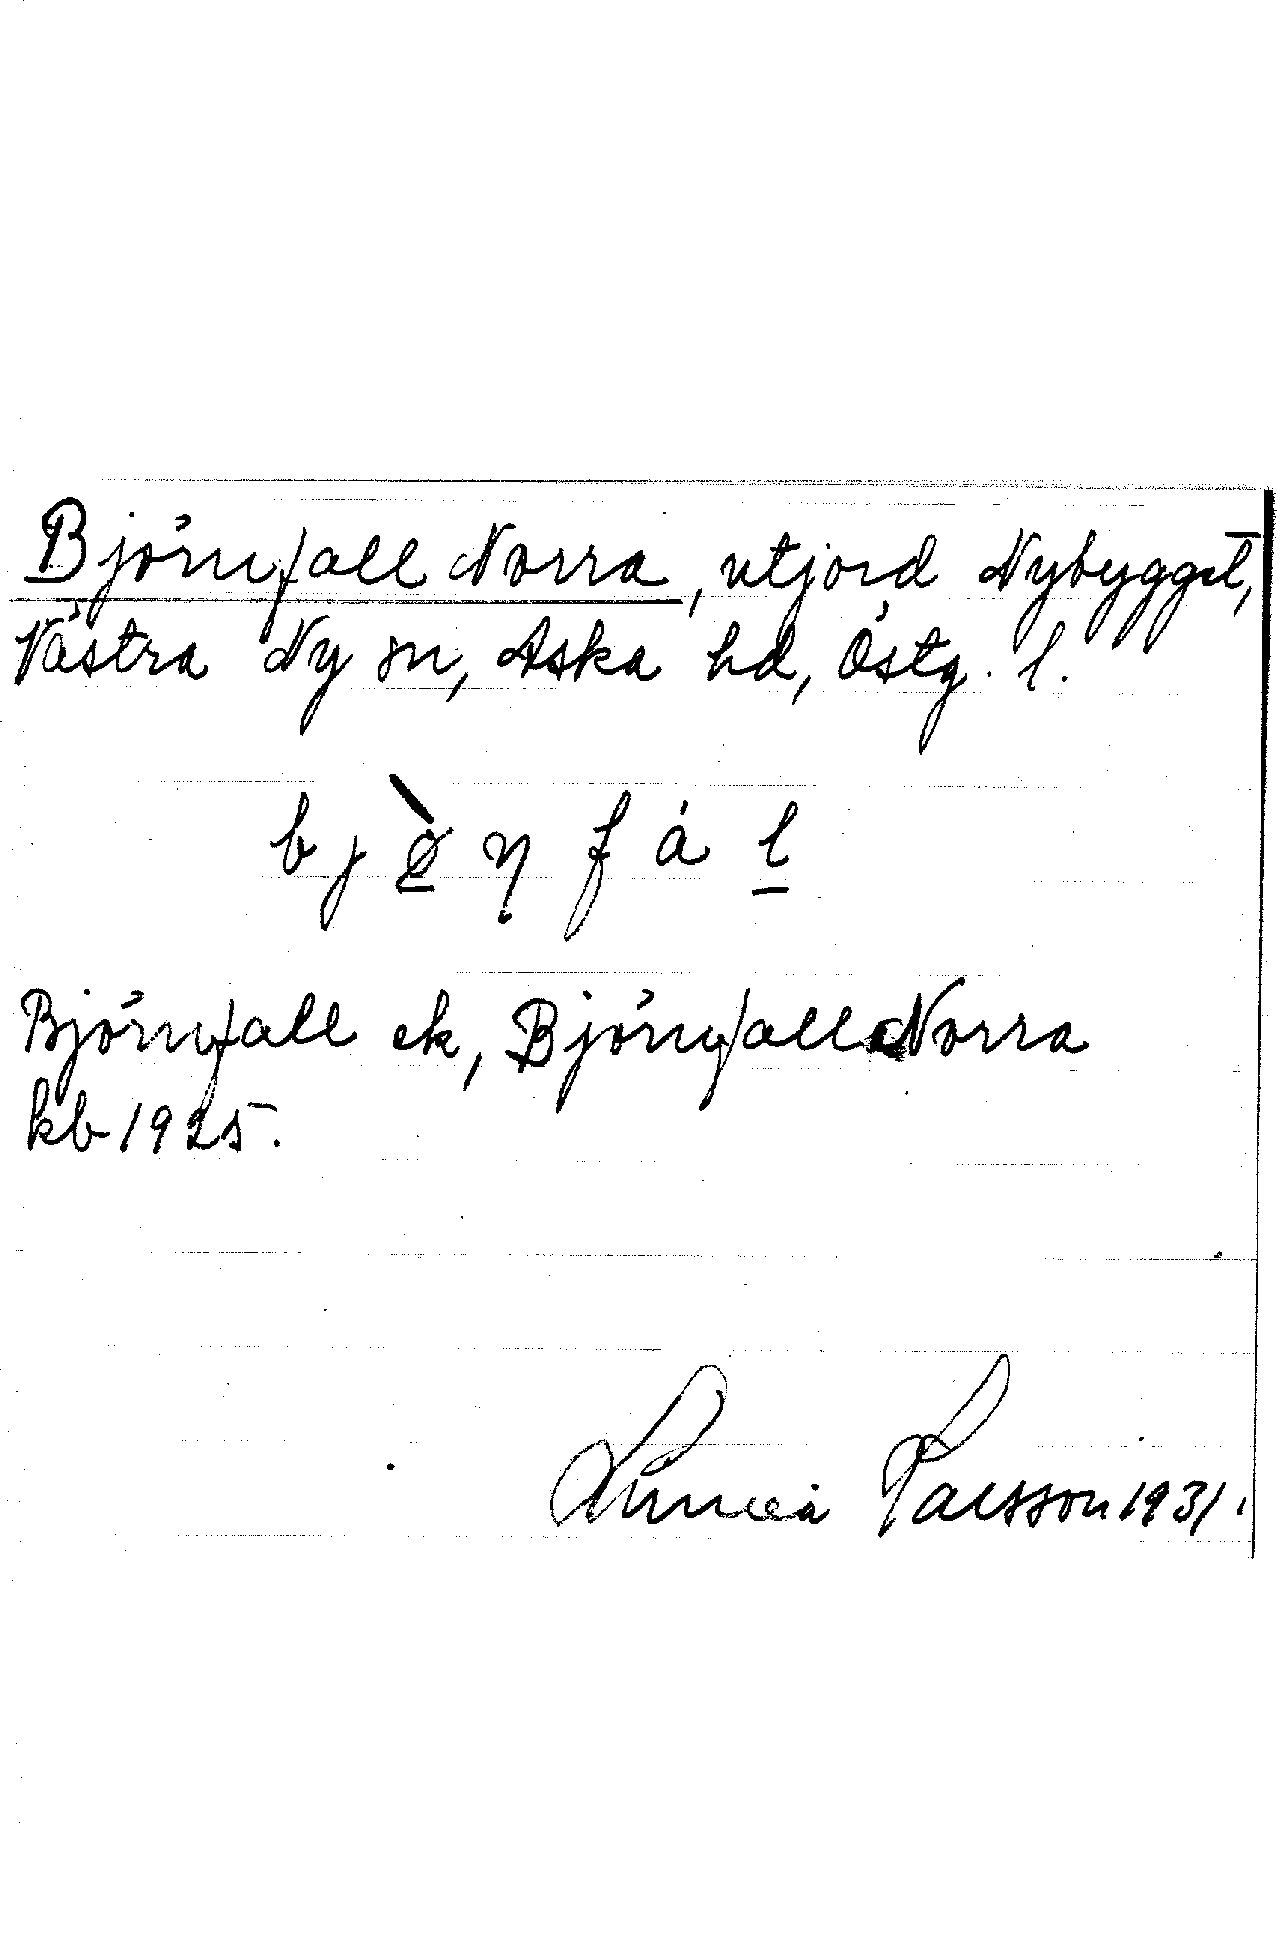 Björnfall Norra, utjord Nybygget,
Västra Ny sn, Aska hd, Östg. l.
b j ø̀ η f á l
Björnfall ek, Björnfall Norra
kb 1925.
Linnea Larsson 1931.